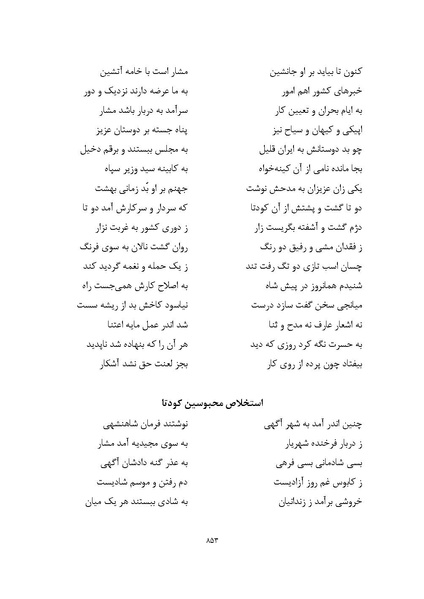 کنون تا بیاید بر او جانشین مشار است با خامه آتشین
خبرهای کشور اهم امور به ما عرضه دارند نزدیک و دور
به ایام بحران و تعیین کار سرآمد به دربار باشد مشار
اپیکی و کیهان و سیاح نیز پناه جسته بر دوستان عزیز
چو بد دوستانش به ایران قلیل به مجلس ببستند و برقم دخیل
بجا مانده نامی از آن کینه‌خواه به کابینه سید وزیر سپاه
یکی زان عزیزان به مدحش نوشت جهنم بر او بُد زمانی بهشت
دو تا گشت و پشتش از آن کودتا که سردار و سرکارش آمد دو تا
دژم گشت و آشفته بگریست زار ز دوری کشور به غربت نزار
ز فقدان مشی و رفیق دو رنگ روان گشت نالان به سوی فرنگ
چسان اسب تازی دو تگ رفت تند ز یک حمله و نغمه گردید کند
شنیدم همانروز در پیش شاه به اصلاح کارش همی‌جست راه
میانجی سخن گفت سازد درست نیاسود کاخش بد از ریشه سست
نه اشعار عارف نه مدح و ثنا شد اندر عمل مایه اعتنا
به حسرت نگه کرد روزی که دید هر آن را که بنهاده شد ناپدید
بیفتاد چون پرده از روی کار بجز لعنت حق نشد آشکار
استخلاص محبوسین کودتا
چنین اندر آمد به شهر آگهی نوشتند فرمان شاهنشهی
ز دربار فرخنده شهریار به سوی مجیدیه آمد مشار
بسی شادمانی بسی فرهی به عذر گنه دادشان آگهی
ز کابوس غم روز آزادیست دم رفتن و موسم شادیست
خروشی برآمد ز زندانیان به شادی ببستند هر یک میان
۸۵۳